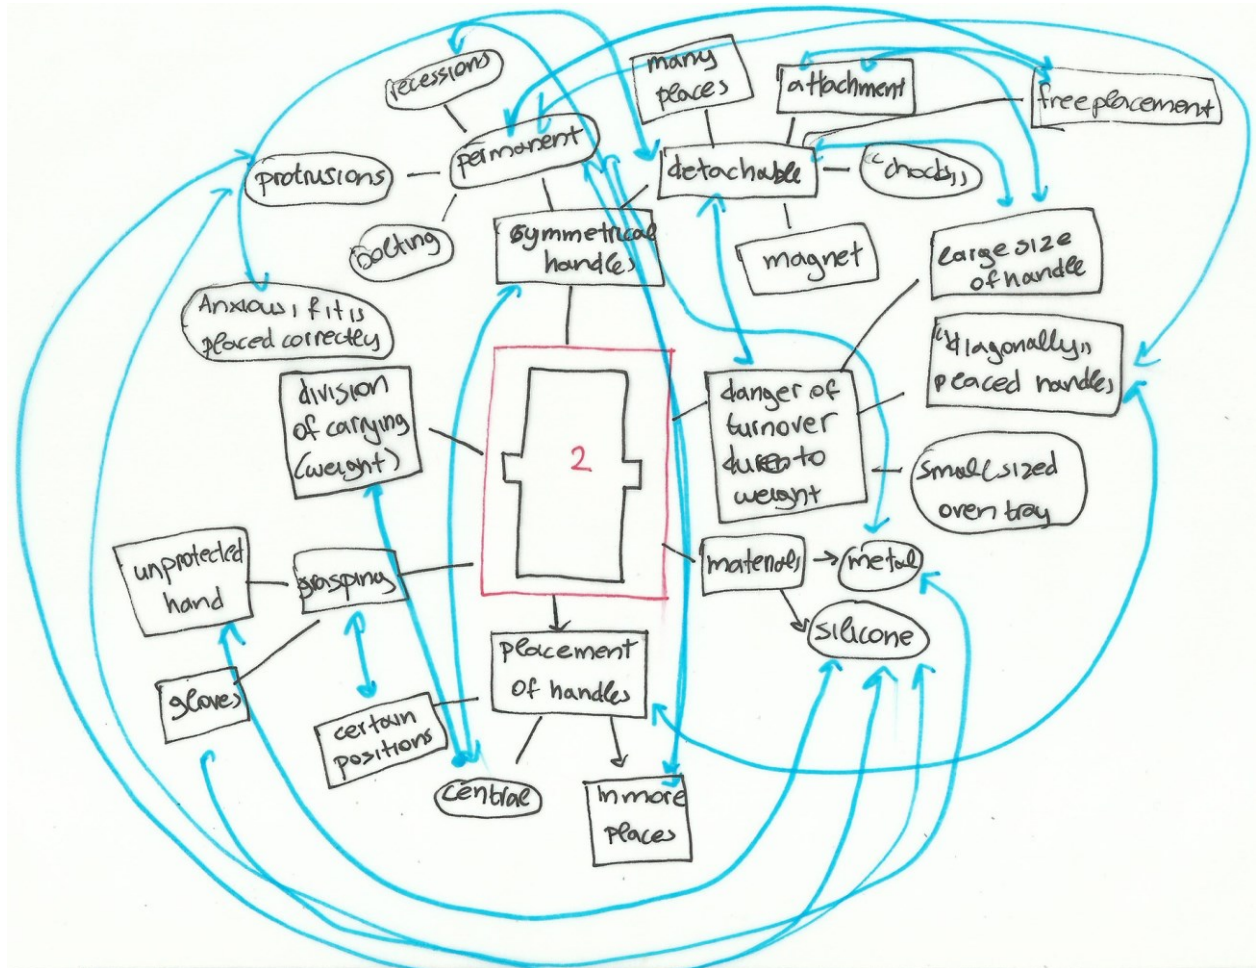 recessions
many
places
attachment
free placement
permanent
protrusions
detachable
bolting
symmetrical
handles
magnet
large size
of handle
Anxious, if it is
placed correctly
"diagonally"
placed handles
division
of carrying
(weight)
2
danger of
turnover
to
weight
small sized
oven tray
unprotected
hand
grasping
materials
metal
silicone
placement
of handles
gloves
certain
positions
central
In more
places